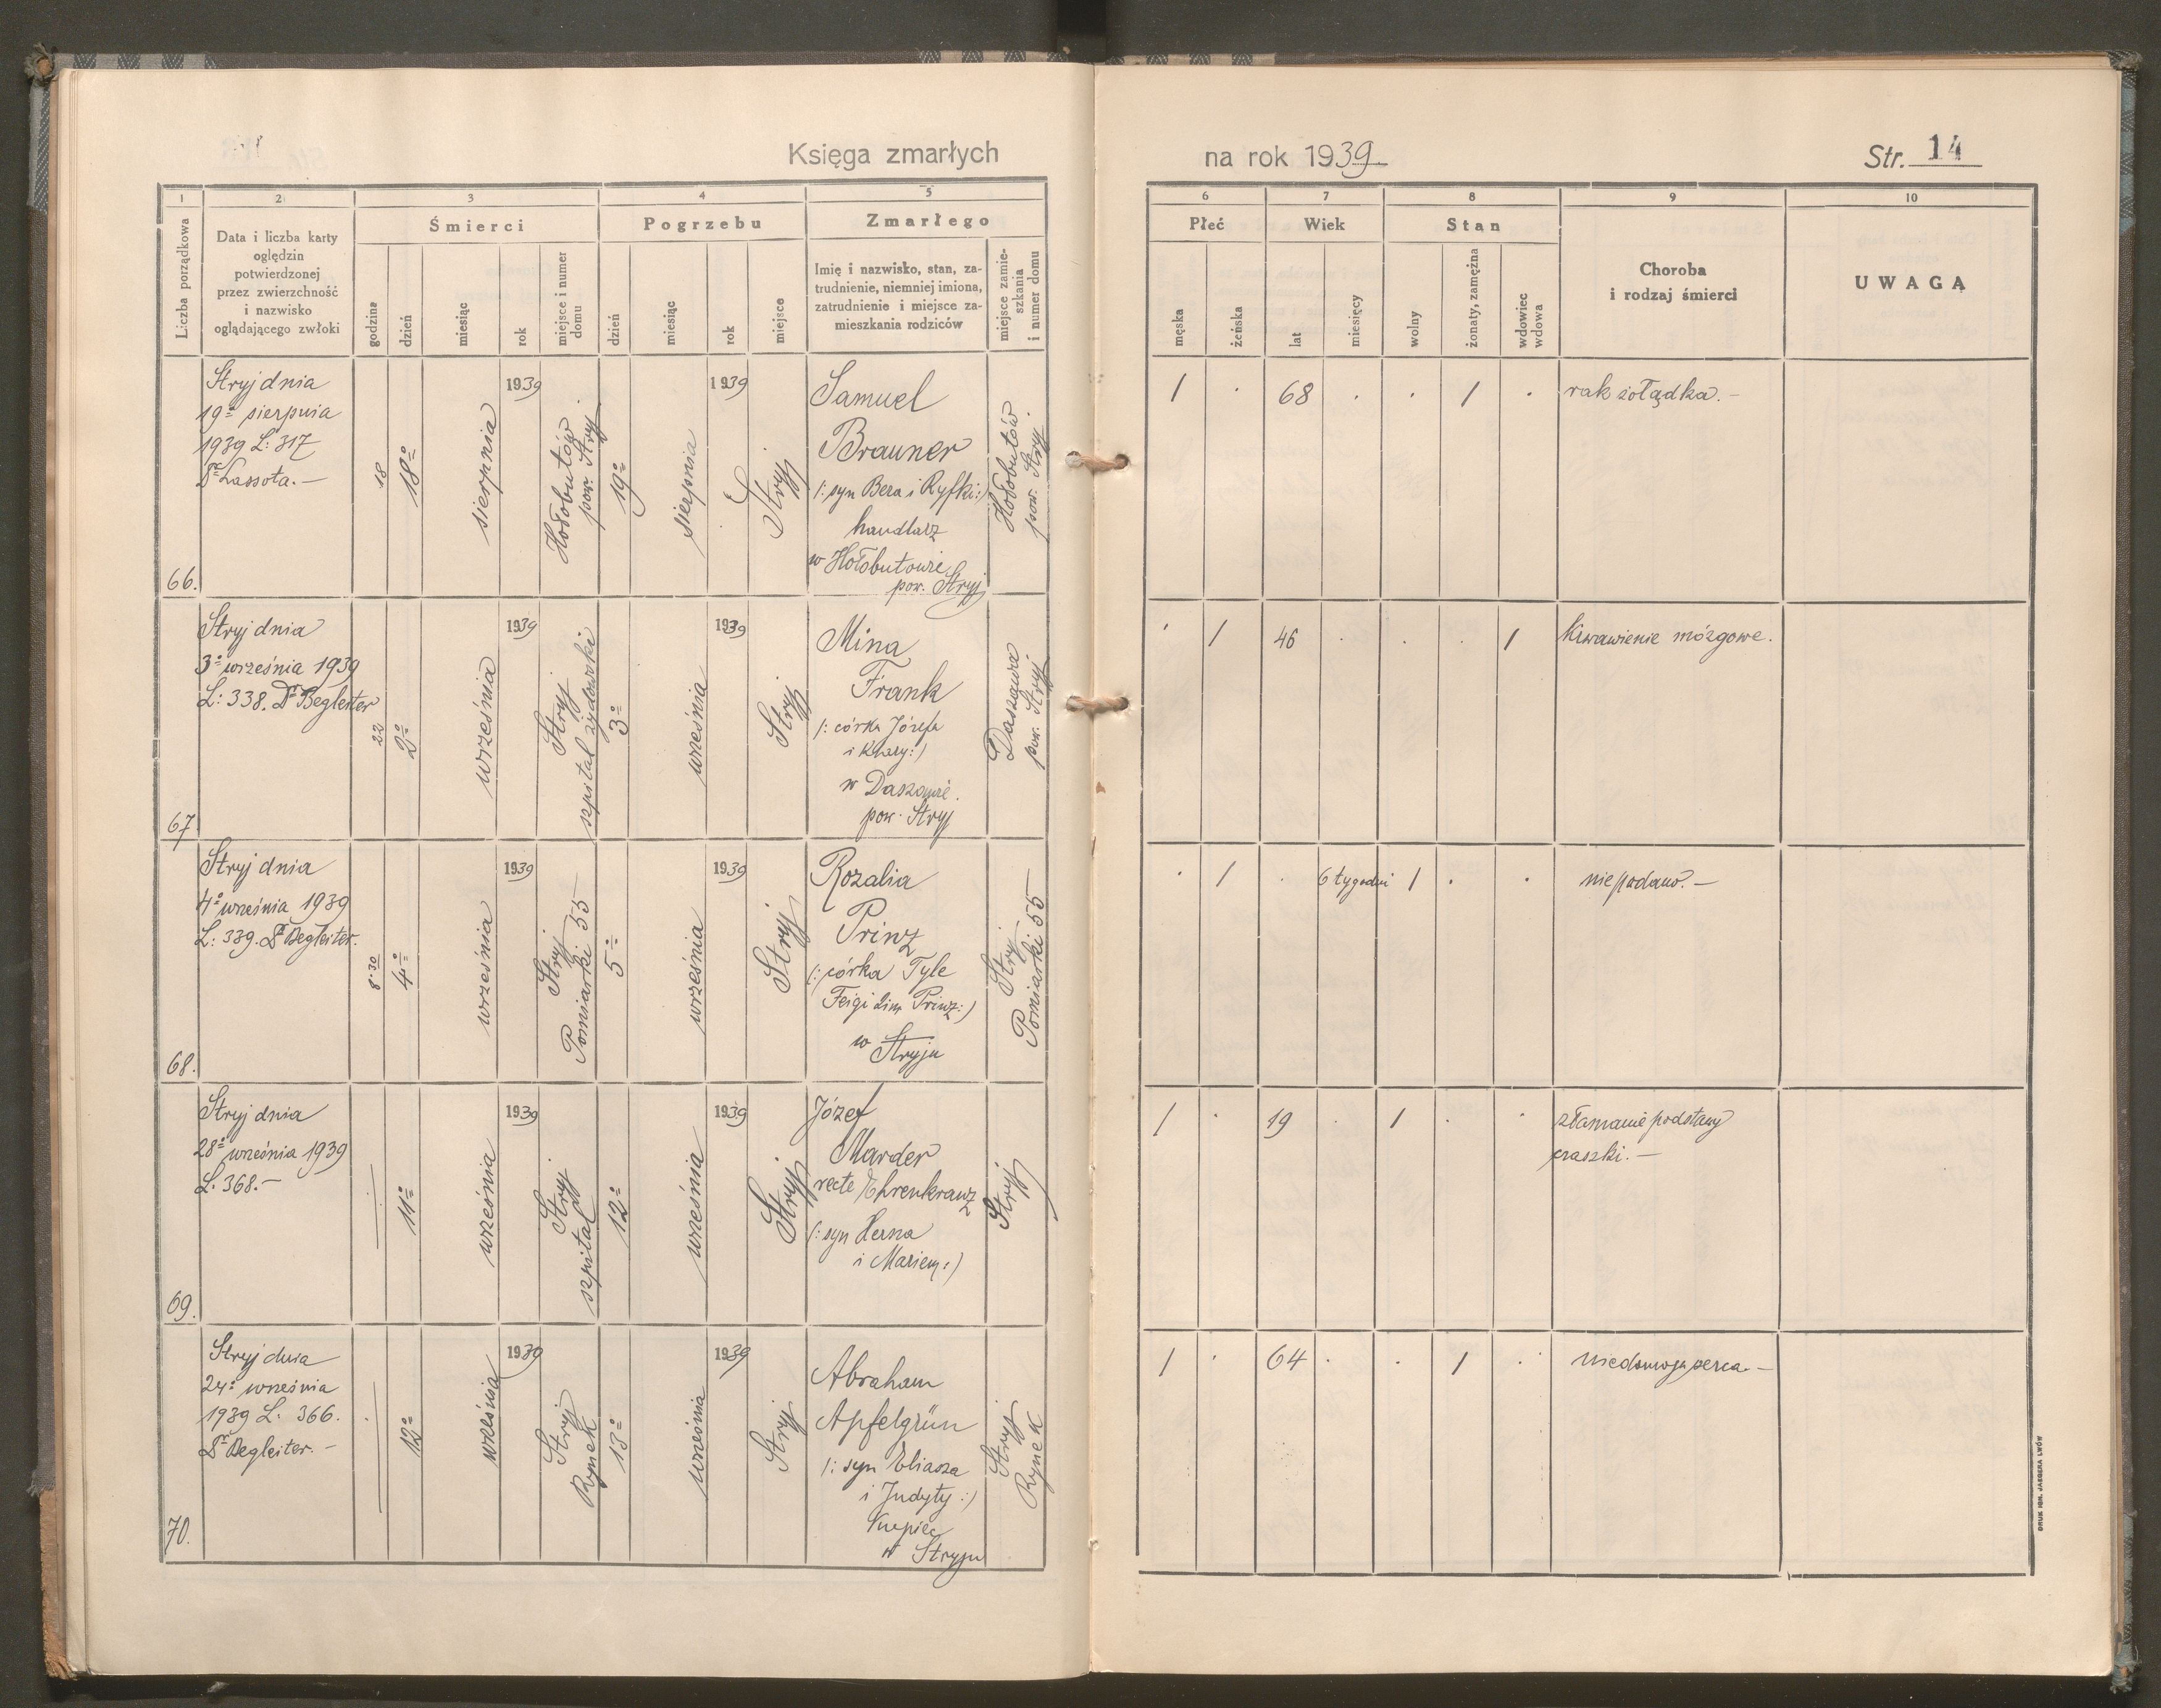 Księga zmarłych
na rok 1939
Str. 14
1
2
3
4
5
Liczba porządkowa
Data i liczba karty
oględzin
potwierdzonej
przez zwierzchność
i nazwisko
oglądającego zwłoki
Śmierci
godzina
dzień
miesiąc
rok
miejsce i numer
domu
Pogrzebu
dzień
miesiąc
rok
miejsce
Zmarłego
Imię i nazwisko, stan, za-
trudnienie, niemniej imiona,
zatrudnienie i miejsce za-
mieszkania rodziców
miejsce zamie-
szkania
i numer domu
6
7
8
9
10
Płeć
męska
żeńska
Wiek
lat
miesięcy
Stan
wolny
żonaty, zamężna
wdowiec
wdowa
Choroba
i rodzaj śmierci
UWAGA
66.
Stryj dnia
19º sierpnia
1939 L: 317
Dr Lassota. —
18
18º
sierpnia
1939
Hołobutów
pow. Stryj
19º
sierpnia
1939
Stryj
Samuel
Brauner
/: syn Bera i Ryfki :/
handlarz
w Hołobutowie
pow. Stryj
Hołobutów
pow. Stryj
1 . 68 . . 1 .
rak żołądka. —
67
Stryj dnia
3º września 1939
L: 338. Dr Begleiter
22
2º
września
1939
Stryj
szpital żydowski
3º
września
1939
Stryj
Mina
Frank
/: córka Józefa
i Klary :/
w Daszawie.
pow. Stryj
Daszawa
pow. Stryj
. 1 46 . . . 1
Krwawienie mózgowe.
68.
Stryj dnia
4º września 1939
L: 339. Dr Begleiter.
8.30
4º
września
1939
Stryj
Pomiarki 55
5º
września
1939
Stryj
Rozalia
Prinz
/: córka Tyle
Feigi 2im Prinz :/
w Stryju
Stryj
Pomiarki 55
. 1 . 6 tygodni 1 . .
nie podano. —
69.
Stryj dnia
28º września 1939
L. 368. —
11º
września
1939
Stryj
szpital
12º
września
1939
Stryj
Józef
Marder
recte Ehrenkranz
/: syn Herna
i Mariem :/
Stryj
1 . 19 . 1 . .
złamanie podstawy
czaszki. —
70.
Stryj dnia
24º września
1939 L: 366.
Dr Begleiter. —
12º
września
1939
Stryj
Rynek
13º
września
1939
Stryj
Abraham
Apfelgrün
/: syn Eliasza
i Judyty :/
Kupiec
w Stryju
Stryj
Rynek
1 . 64 . . 1 .
niedomoga serca. —
DRUK HIM. JAEGERA LWÓW